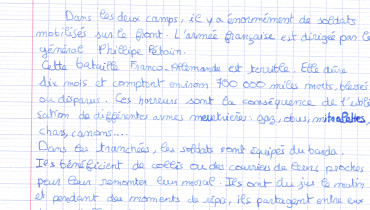 Dans les deux camps, il y a énormément de soldats
mobilisés sur le front. L'armée française est dirigée par le
général Phillipe Pétain.
Cette bataille Franco-Allemande est terrible. Elle dure
dix mois et comptent environ 700 000 miles morts, blessés
ou disparus. Ces horreurs sont la conséquence de l'utili
sation de différentes armes meurtrières: gaz, obus, mitraillettes,
chars, canons....
Dans les tranchées, les soldats sont équipés du barda.
Ils bénéficient de collis ou des courriers de leurs proches
pour leur remonter leur moral. Ils ont du jus le matin
et pendant des moments de répis, ils partagent entre eux